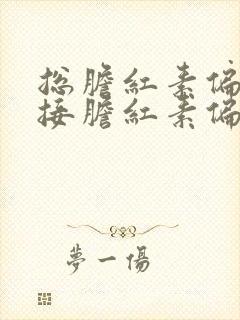 总膽紅素偏
接膽紅素偏
夢一傷